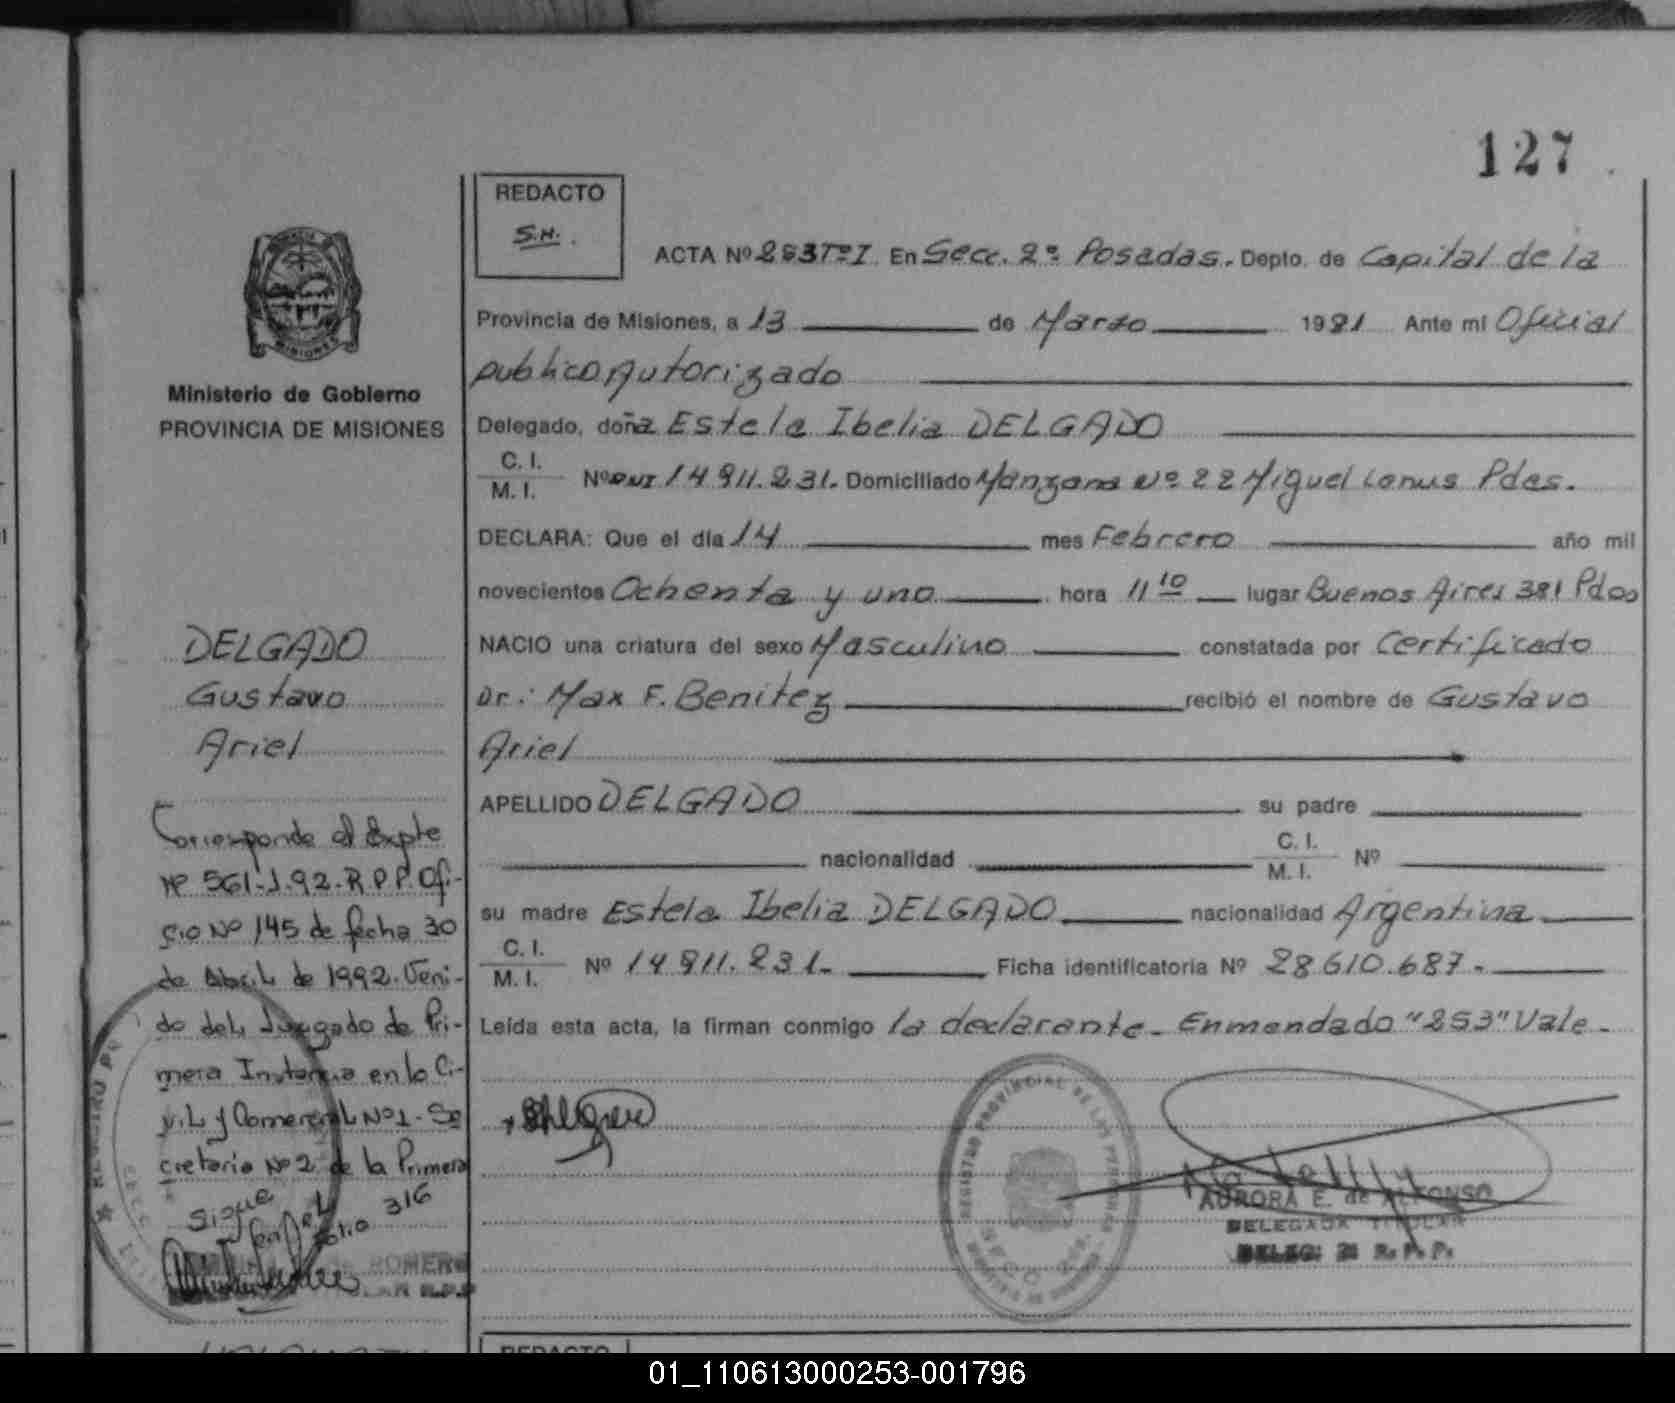 127
REDACTO
S.H.
ACTA Nº 253 Tº I. En Secc. 2ª Posadas. Depto. de Capital de la
Provincia de Misiones, a 13 de Marzo 1981 Ante mi Oficial
publico Autorizado
Delegado, doña Estela Ibelia DELGADO
C. I.
M. I.
Nº DNI 14.911.231. Domiciliado Manzana Nº 22 Miguel Lanus Pdas.
DECLARA: Que el día 14 mes Febrero año mil
novecientos Ochenta y uno hora 11 10 lugar Buenos Aires 381 Pdas
NACIO una criatura del sexo Masculino constatada por Certificado
Dr: Max F. Benitez recibió el nombre de Gustavo
Ariel
APELLIDO DELGADO su padre
nacionalidad C. I.
M. I. Nº
su madre Estela Ibelia DELGADO nacionalidad Argentina
C. I.
M. I.
Nº 14.911.231. Ficha identificatoria Nº 28.610.687.
Leída esta acta, la firman conmigo la declarante. Enmendado "253" Vale.
REGISTRO PROVINCIAL DE LAS PERSONAS
SECC.
AURORA E. de ALFONSO
DELEGADA TITULAR
DELEG. 2ª R. P. P.
MISIONES
Ministerio de Gobierno
PROVINCIA DE MISIONES
DELGADO
Gustavo
Ariel
Corresponde al Expte
Nº 561-J-92-R.P.P. Ofi-
cio Nº 145 de fecha 30
de Abril de 1992. Veni-
do del Juzgado de Pri-
mera Instancia en lo Ci-
vil y Comercial Nº 1. Se
cretaria Nº 2 de la Primera
Sigue
en el
Folio 316
ROMERO
REDACTO
01_110613000253-001796